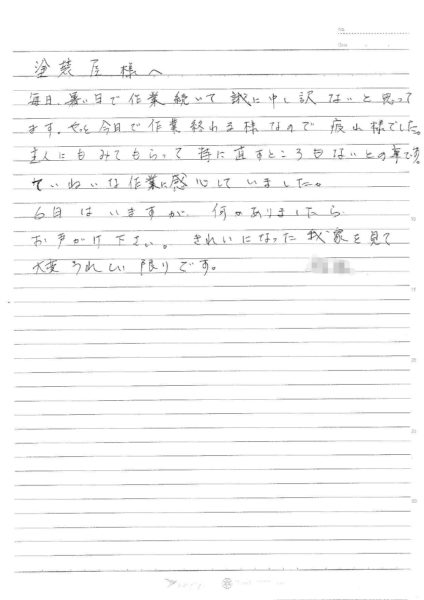 No.
Date
塗装屋様へ
毎日、暑い日で作業続いて誠に申し訳ないと思って
ます。やっと今日で作業終わる様なので疲れ様でした。
主人にもみてもらって特に直すところもないとの事です。
ていねいな作業に感心していました。
6日はいますが、何かありましたら
お声がけ下さい。きれいになった我家を見て
大変うれしい限りです。